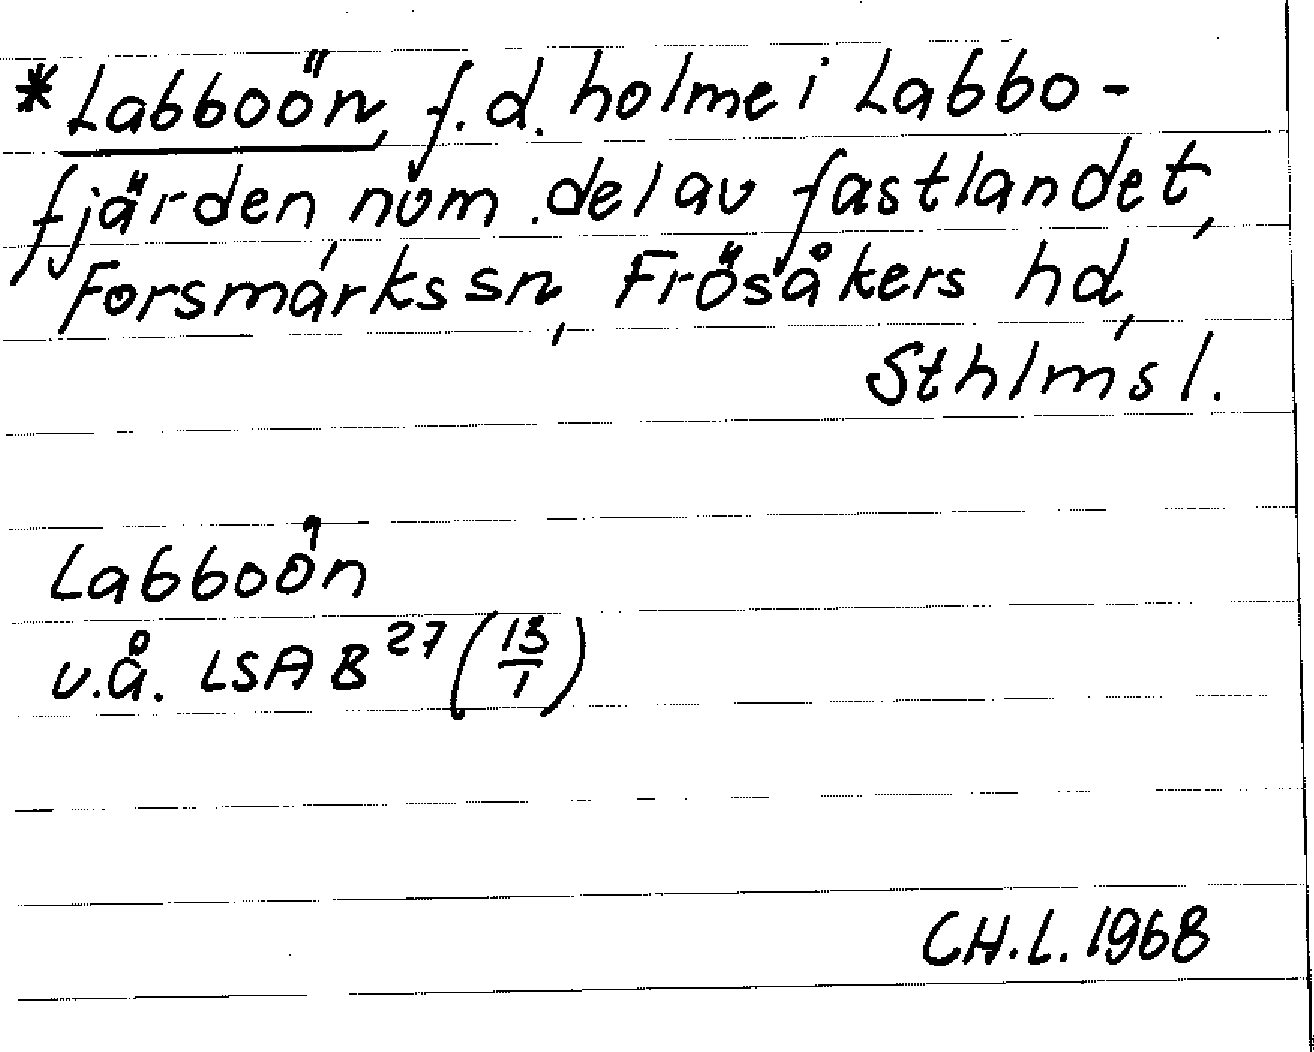 *Labboön, f.d. holme i Labbo-
fjärden, num. del av fastlandet,
Forsmarks sn, Frösåkers hd,
Sthlms l.
Labboön
u.å. LSA B²⁷ (13/1)
CH.L. 1968